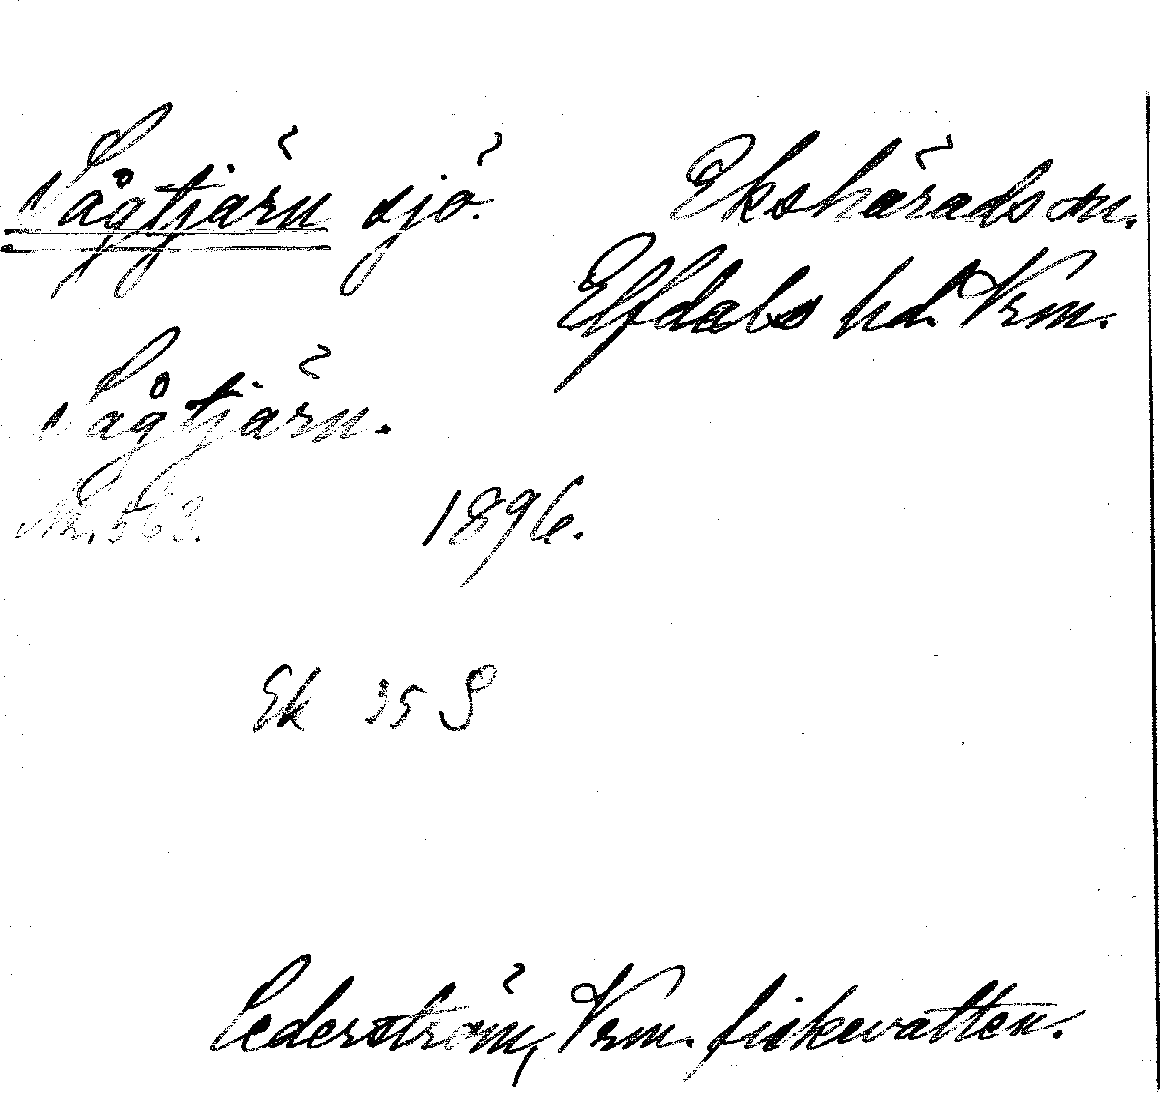 Sågtjärn sjö. Ekshärads sn.
Elfdals hd. Vrm.
Sågtjärn.
Nr. 563. 1896.
Ek 35 S
Cederström, Vrm. fiskevatten.